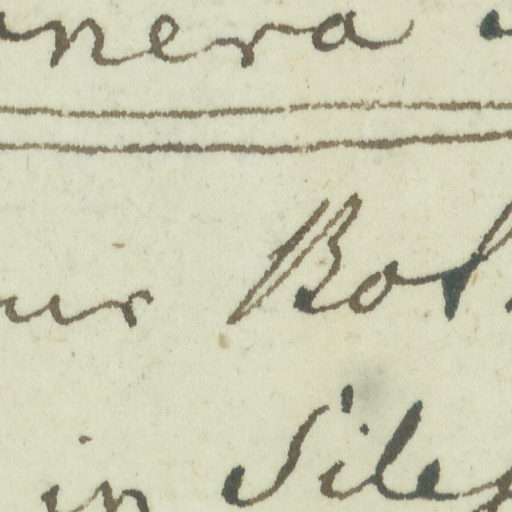 nera
ur Bot
in Siles